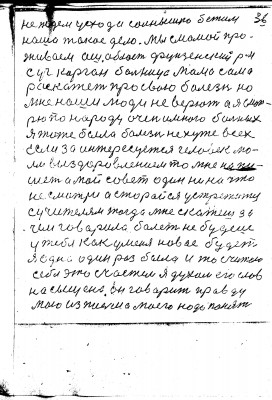 36
не ждем ухода солнышко бежим
наша такое дело. Мы с мамой про-
живаем ош область фрунзенский р-н
с/с карган больница мама сама
раскажет про свою болезн но
мне наши люди не верют а я смот-
рю по народу очен много больных
я тоже была болна не хуже всех
если заинтересуется человек
моим выздоровлением то мне
пишет а мой совет один ни на что
не смотри а старайся устре
с учителям тогда мне скажеш за-
чем говарила болет не будеш
у тебя как у меня новае будет
я одна один раз была и то считаю
себя это счастем я духом его слов
насыщена. он говарит правду
маю из писма моего надо понят